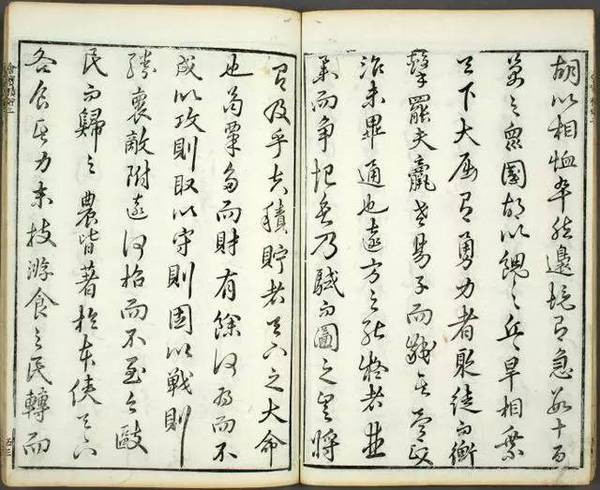 胡以相恤卒然邊境有急數十百
萬之衆國胡以餽之兵旱相乘
天下大屈有勇力者聚徒而衡
擊罷夫羸老易子而齩其骨政
治未畢通也遠方之能疑者並
舉而爭起矣乃駭而圖之豈將
有及乎夫積貯者天下之大命
也苟粟多而財有餘何為而不
成以攻則取以守則固以戰則
勝懷敵附遠何招而不至今毆
民而歸之農皆著於本使天下
各食其力末技游食之民轉而